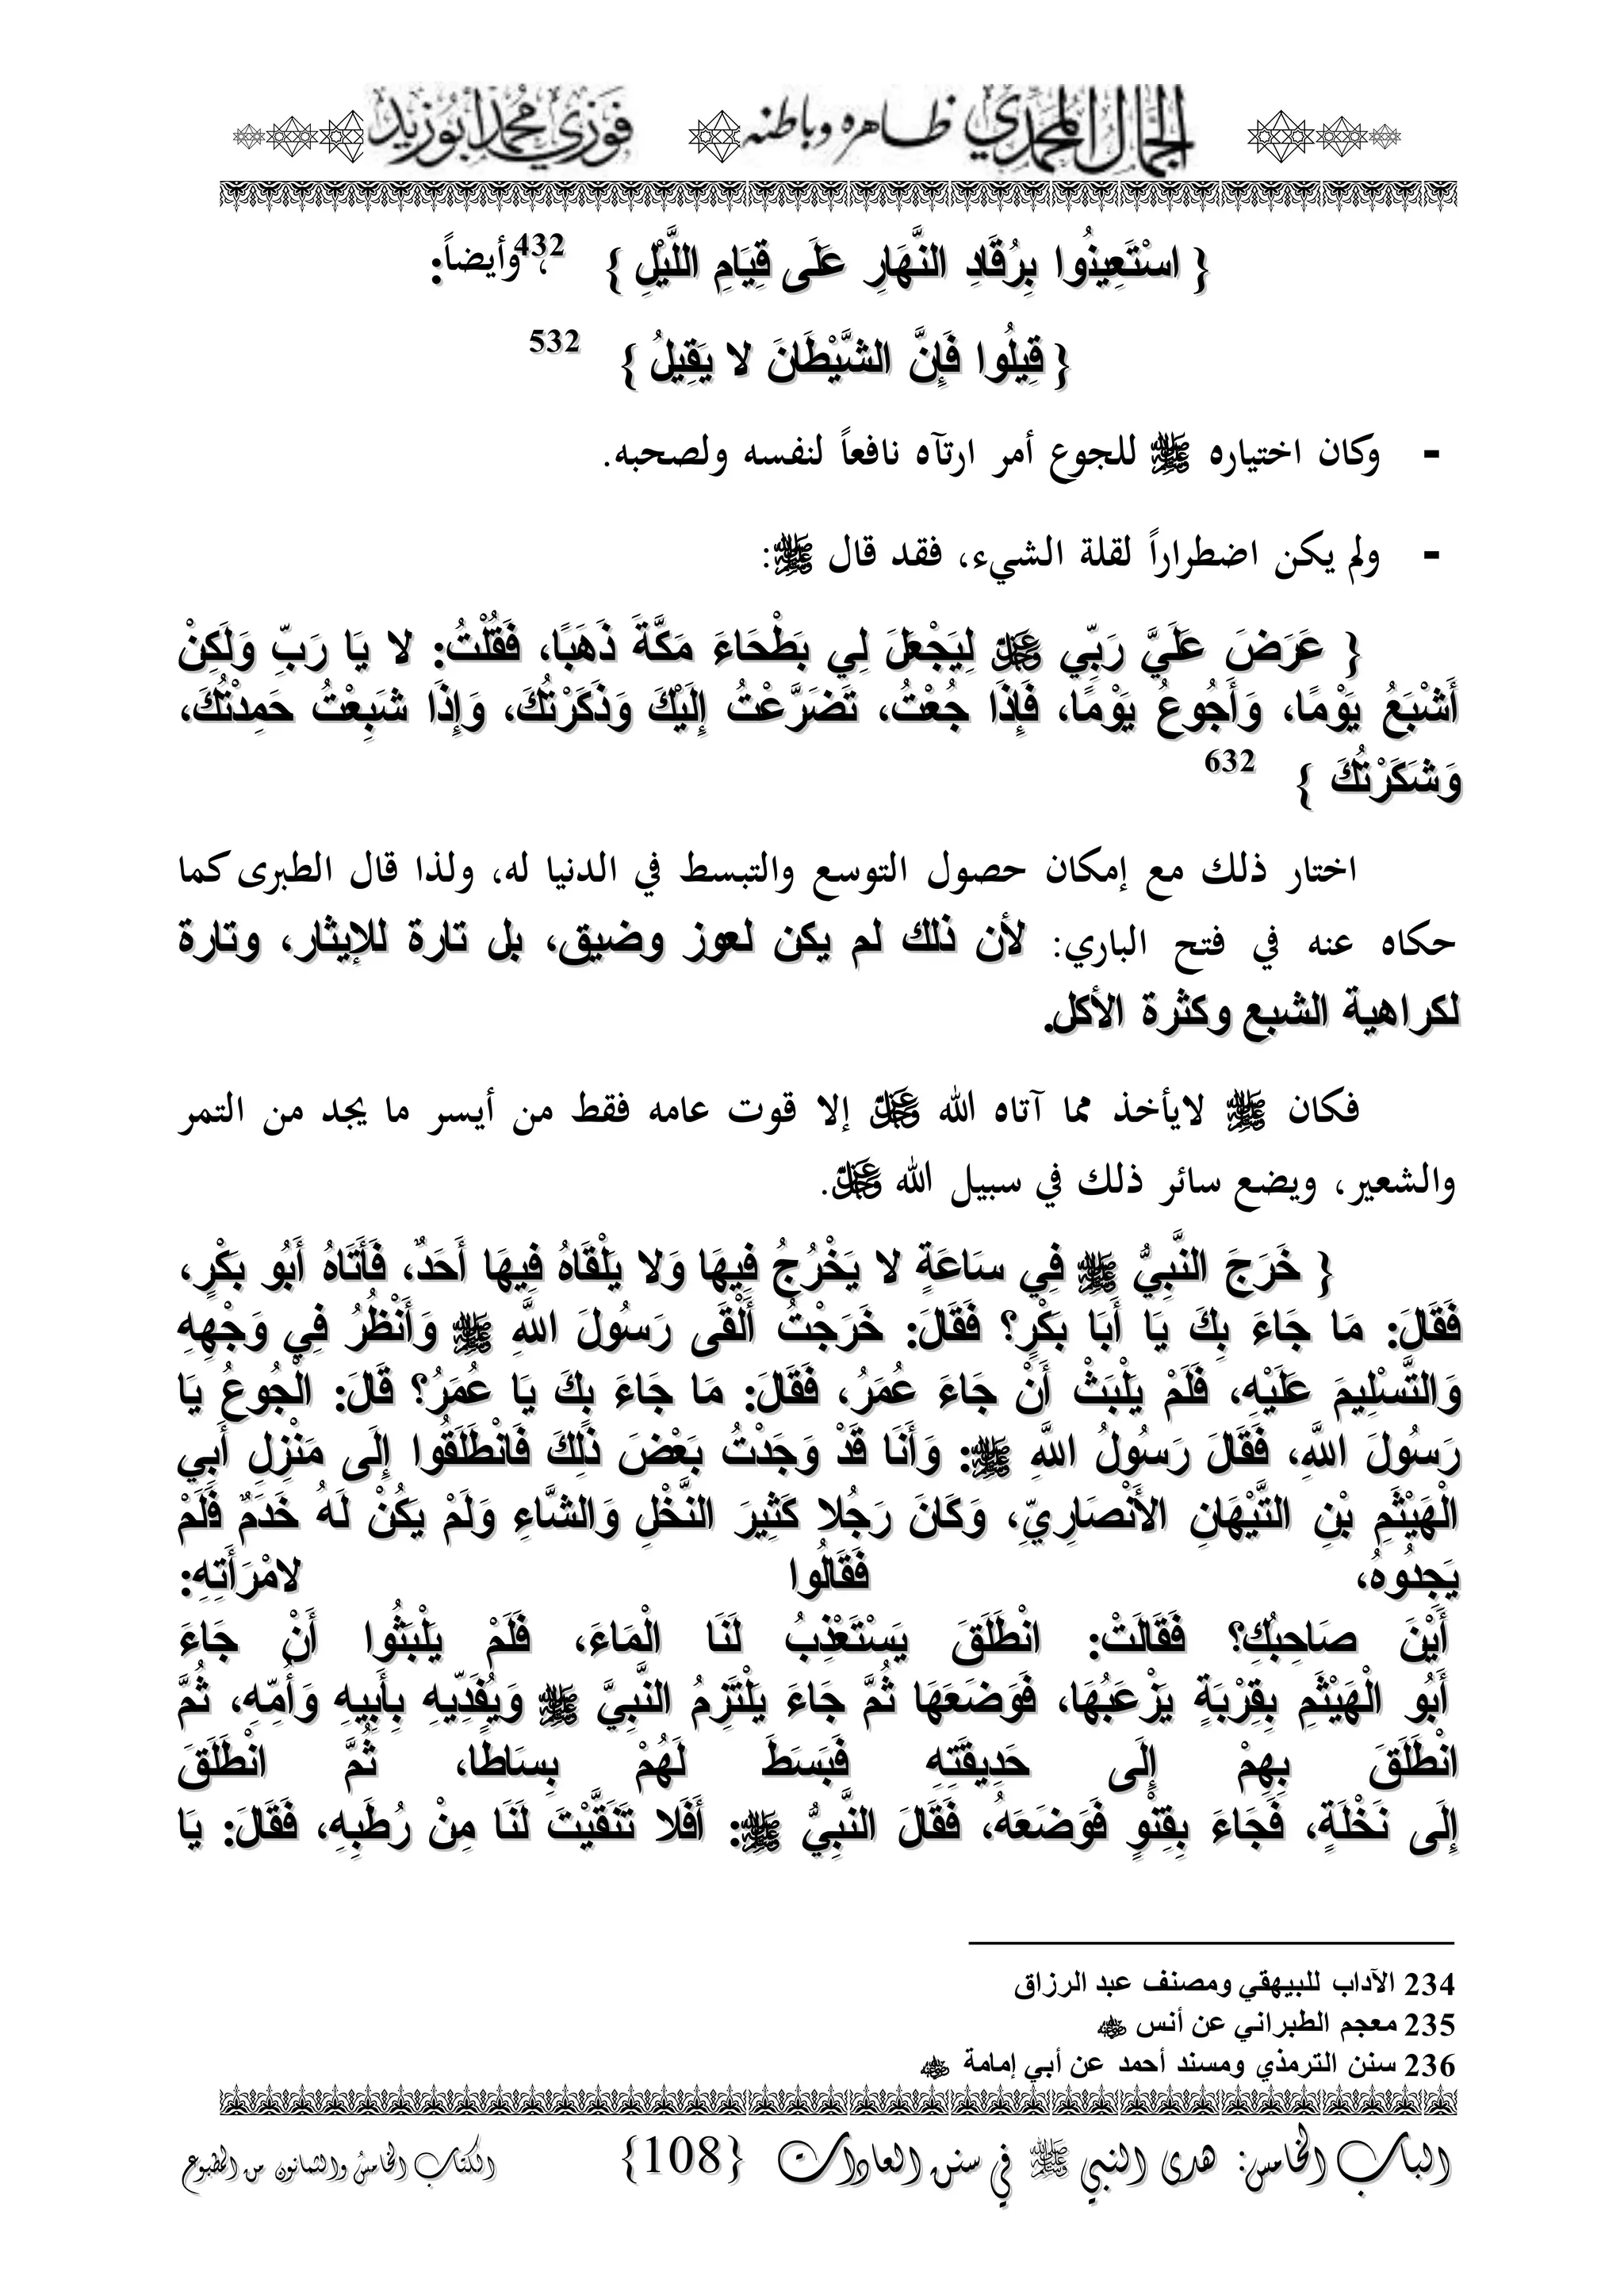 الجمال المحمدي ظاهره وباطنه فوزي محمد أبوزيد
{ اسْتَعِينُوا بِرُقَادِ النَّهَارِ عَلَى قِيَامِ اللَّيْلِ } 432، وأيضاً:
{ قِيلُوا فَإِنَّ الشَّيْطَانَ لا يَقِيلُ } 532
- وكان اختياره ﷺ للجوع أمر ارتآه نافعاً لنفسه ولصحبه.
- ولم يكن اضطراراً لقلة الشيء، فقد قال ﷺ:
{ عَرَضَ عَلَيَّ رَبِّي ﷻ لِيَجْعَلَ لِي بَطْحَاءَ مَكَّةَ ذَهَبًا، فَقُلْتُ: لا يَا رَبِّ وَلَكِنْ
أَشْبَعُ يَوْمًا، وَأَجُوعُ يَوْمًا، فَإِذَا جُعْتُ، تَضَرَّعْتُ إِلَيْكَ وَذَكَرْتُكَ، وَإِذَا شَبِعْتُ حَمِدْتُكَ،
وَشَكَرْتُكَ } 632
اختار ذلك مع إمكان حصول التوسع والتبسط في الدنيا له، ولذا قال الطبرى كما
حكاه عنه في فتح الباري: لأن ذلك لم يكن لعوز وضيق، بل تارة للإيثار، وتارة
لكراهية الشبع وكثرة الأكل.
فكان ﷺ لايأخذ مما آتاه الله ﷻ إلا قوت عامه فقط من أيسر ما يجد من التمر
والشعير، ويضع سائر ذلك في سبيل الله ﷻ.
{ خَرَجَ النَّبِيُّ ﷺ فِي سَاعَةٍ لا يَخْرُجُ فِيهَا وَلا يَلْقَاهُ فِيهَا أَحَدٌ، فَأَتَاهُ أَبُو بَكْرٍ،
فَقَالَ: مَا جَاءَ بِكَ يَا أَبَا بَكْرٍ؟ فَقَالَ: خَرَجْتُ أَلْقَى رَسُولَ اللَّهِ ﷺ وَأَنْظُرُ فِي وَجْهِهِ
وَالتَّسْلِيمَ عَلَيْهِ، فَلَمْ يَلْبَثْ أَنْ جَاءَ عُمَرُ، فَقَالَ: مَا جَاءَ بِكَ يَا عُمَرُ؟ قَالَ: الْجُوعُ يَا
رَسُولَ اللَّهِ، فَقَالَ رَسُولُ اللَّهِ ﷺ: وَأَنَا قَدْ وَجَدْتُ بَعْضَ ذَلِكَ فَانْطَلَقُوا إِلَى مَنْزِلِ أَبِي
الْهَيْثَمِ بْنِ التَّيْهَانِ الأَنْصَارِيِّ، وَكَانَ رَجُلا كَثِيرَ النَّخْلِ وَالشَّاءِ وَلَمْ يَكُنْ لَهُ خَدَمٌ فَلَمْ
يَجِدُوهُ، فَقَالُوا لامْرَأَتِهِ:
أَيْنَ صَاحِبُكِ؟ فَقَالَتْ: انْطَلَقَ يَسْتَعْذِبُ لَنَا الْمَاءَ، فَلَمْ يَلْبَثُوا أَنْ جَاءَ
أَبُو الْهَيْثَمِ بِقِرْبَةٍ يَزْعَبُهَا، فَوَضَعَهَا ثُمَّ جَاءَ يَلْتَزِمُ النَّبِيَّ ﷺ وَيُفَدِّيهِ بِأَبِيهِ وَأُمِّهِ، ثُمَّ
انْطَلَقَ بِهِمْ إِلَى حَدِيقَتِهِ فَبَسَطَ لَهُمْ بِسَاطًا، ثُمَّ انْطَلَقَ
إِلَى نَخْلَةٍ، فَجَاءَ بِقِنْوٍ فَوَضَعَهُ، فَقَالَ النَّبِيُّ ﷺ: أَفَلا تَنَقَّيْتَ لَنَا مِنْ رُطَبِهِ، فَقَالَ: يَا
234 الآداب للبيهقي ومصنف عبد الرزاق
235 معجم الطبراني عن أنس
236 سنن الترمذي ومسند أحمد عن أبي إمامة
الباب الخامس: هدى النبي ﷺ في سنن العادات {108} الكتاب الخامس والثمانون من المطبوع